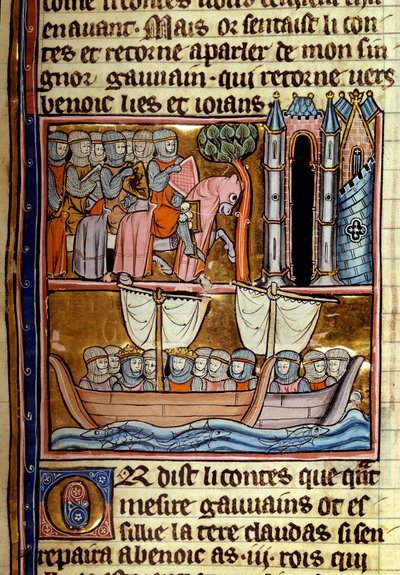 enauant. Mais or sentaist li con
tes et retorne aparler de mon sin
gnor gauuain. qui retorne uers
benoic lies et ioians
OR dist li contes que qãt
mesire gauuains ot es
sillie la tere claudas si sen
repaira abenoic as .iij. rois qui